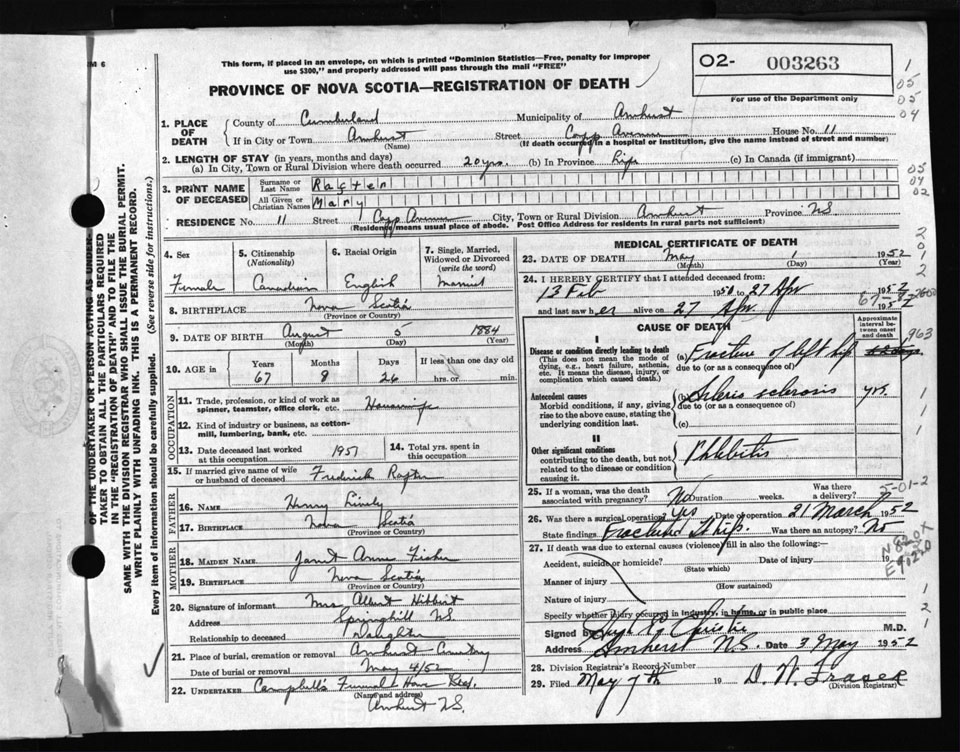 This form, if placed in an envelope, on which is printed "Dominion Statistics—Free, penalty for improper
use $300," and properly addressed will pass through the mail "FREE"
02- 003263
For use of the Department only
PROVINCE OF NOVA SCOTIA—REGISTRATION OF DEATH
1. PLACE OF DEATH
County of Cumberland Municipality of Amherst
If in City or Town Amherst Street Copp Avenue House No. 11
(Name) (If death occurred in a hospital or institution, give the name instead of street and number)
2. LENGTH OF STAY (in years, months and days)
(a) In City, Town or Rural Division where death occurred 20 yrs. (b) In Province Life (c) In Canada (if immigrant)
3. PRINT NAME OF DECEASED
Surname or Last Name Rafter
All Given or Christian Names Mary
RESIDENCE No. 11 Street Copp Avenue City, Town or Rural Division Amherst Province NS
(Residence means usual place of abode. Post Office Address for residents in rural parts not sufficient)
4. Sex
Female
5. Citizenship (Nationality)
Canadian
6. Racial Origin
English
7. Single, Married, Widowed or Divorced (write the word)
Married
8. BIRTHPLACE Nova Scotia
(Province or Country)
9. DATE OF BIRTH August 5 1884
(Month) (Day) (Year)
10. AGE in Years Months Days If less than one day old
67 8 26 hrs. or min.
OCCUPATION
11. Trade, profession, or kind of work as spinner, teamster, office clerk, etc. Housewife
12. Kind of industry or business, as cotton-mill, lumbering, bank, etc.
13. Date deceased last worked at this occupation 1951
14. Total yrs. spent in this occupation
15. If married give name of wife or husband of deceased Frederick Rafter
FATHER
16. NAME Henry
17. BIRTHPLACE Nova Scotia
MOTHER
18. MAIDEN NAME Janet Annie Fisher
19. BIRTHPLACE Nova Scotia
(Province or Country)
20. Signature of informant Mrs Albert Hibbert
Address Springhill NS.
Relationship to deceased Daughter
21. Place of burial, cremation or removal Amherst Cemetery
Date of burial or removal May 4/52
22. UNDERTAKER Campbell's Funeral Home Reg.
(Name and address)
Amherst NS.
MEDICAL CERTIFICATE OF DEATH
23. DATE OF DEATH May 1952
(Month) (Day) (Year)
24. I HEREBY CERTIFY that I attended deceased from:
13 Feb 195 to 27 Apr 1952
and last saw her alive on 27 Apr. 1952
CAUSE OF DEATH
Approximate interval between onset and death
I
Disease or condition directly leading to death
(This does not mean the mode of dying, e.g., heart failure, asthenia, etc. It means the disease, injury, or complication which caused death.)
(a) Fracture of left hip
due to (or as a consequence of)
Antecedent causes
Morbid conditions, if any, giving rise to the above cause, stating the underlying condition last.
(b) Arterio sclerosis yrs.
due to (or as a consequence of)
(c)
II
Other significant conditions
contributing to the death, but not related to the disease or condition causing it.
Phlebitis
25. If a woman, was the death associated with pregnancy? No Duration weeks. Was there a delivery?
26. Was there a surgical operation? Yes Date of operation 21 March 1952
State findings Fractured hip. Was there an autopsy? No
27. If death was due to external causes (violence) fill in also the following:—
Accident, suicide or homicide? Date of injury
(State which)
Manner of injury
(How sustained)
Nature of injury
Specify whether injury occurred in industry, in home, or in public place
Signed by Christie M.D.
Address Amherst N.S. Date 3 May 1952
28. Division Registrar's Record Number
29. Filed May 7th 19 D. W. Fraser
(Division Registrar)
OF THE UNDERTAKER OR PERSON ACTING AS UNDER-
TAKER TO OBTAIN ALL THE PARTICULARS REQUIRED
IN THE "REGISTRATION OF DEATH" AND TO FILE THE
SAME WITH THE DIVISION REGISTRAR WHO SHALL ISSUE THE BURIAL PERMIT.
WRITE PLAINLY WITH UNFADING INK. THIS IS A PERMANENT RECORD.
Every item of information should be carefully supplied. (See reverse side for instructions.)
1
05
05
04
05
04
02
2
0
1
2
963
1
1
1
5-01-2
N 820X
1
2
1